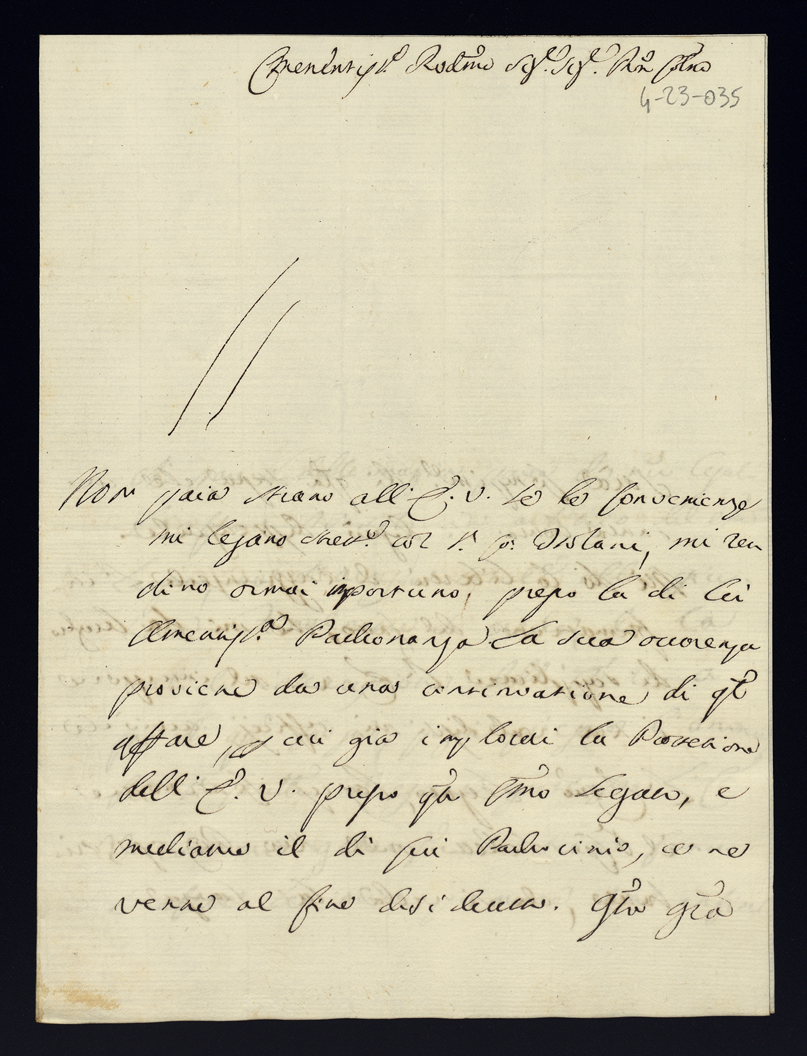 Em̄entiss.º Rev̄dmo Sig.r Sig.r P̄ron Col̄mo
4-23-035
Non paia strano all' E.ª V. se le convenienze
mi legano col P. Isolani, mi ren
dino ormai importuno, presso la di lei
Em̄entiss.ª Padronanza La sua occorenza
proviene da una continuatione di q̄to
affare, cui gia implorai la Protetione
dell' E.ª V. presso q̄to Em̄o Legato, e
mediante il di Lei Padrocinio, se ne
venne al fine desiderato. Q̄ta gr̄a